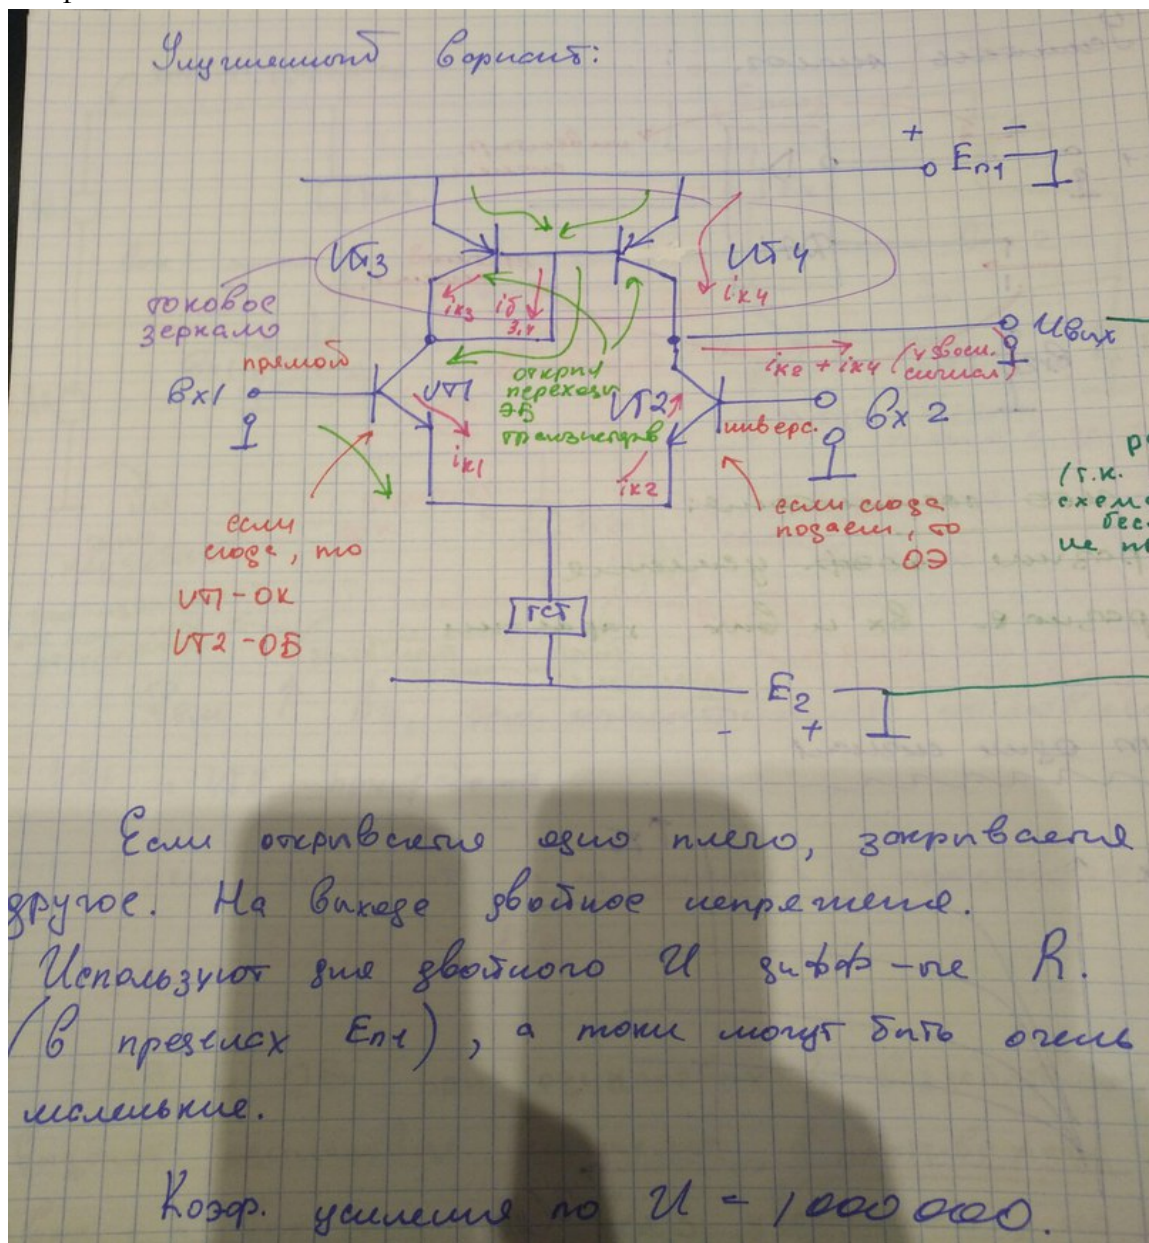 Улучшенный вариант:
+ −
Eп1
VT3
VT4
iк3
iб
3,4
iк4
токовое
зеркало
Uвых
прямой
iк2 + iк4 (удвоен.
сигнал)
Вх1
VT1
открыт
переходы
ЭБ
транзисторов
VT2
инверс.
Вх 2
iк1
iк2
если
сюда, то
VT1 - ОК
VT2 - ОБ
если сюда
подаем, то
ОЭ
(т.к.
схема
бес
не
ГСТ
E2
- +
Если открывается одно плечо, закрывается
другое. На выходе двойное напряжение.
Используют для двойного U дифф-ые R.
(в пределах Eп1), а токи могут быть очень
маленькие.
Коэф. усиления по U = 1000 000.